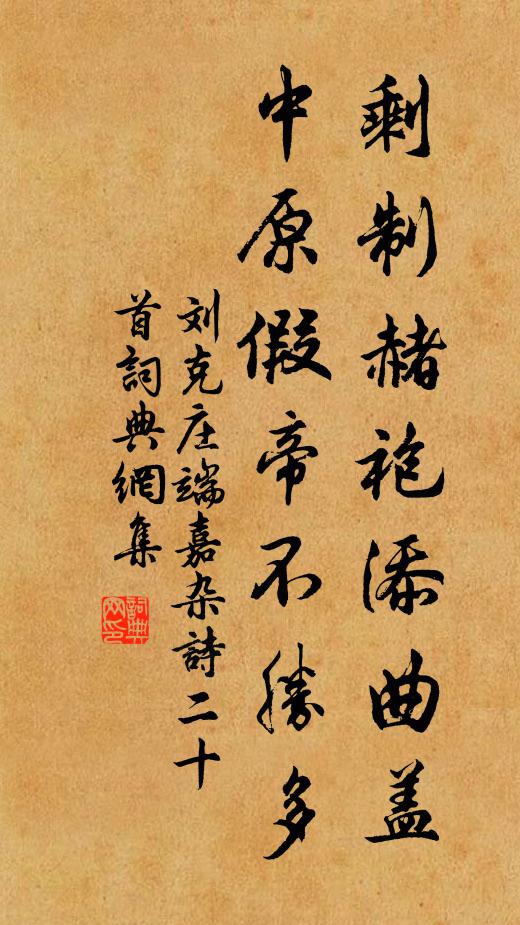 剩制赭袍添曲盖
中原假帝不勝多
刘克庄端嘉杂詩二十
首詞典網集
詞典
网印